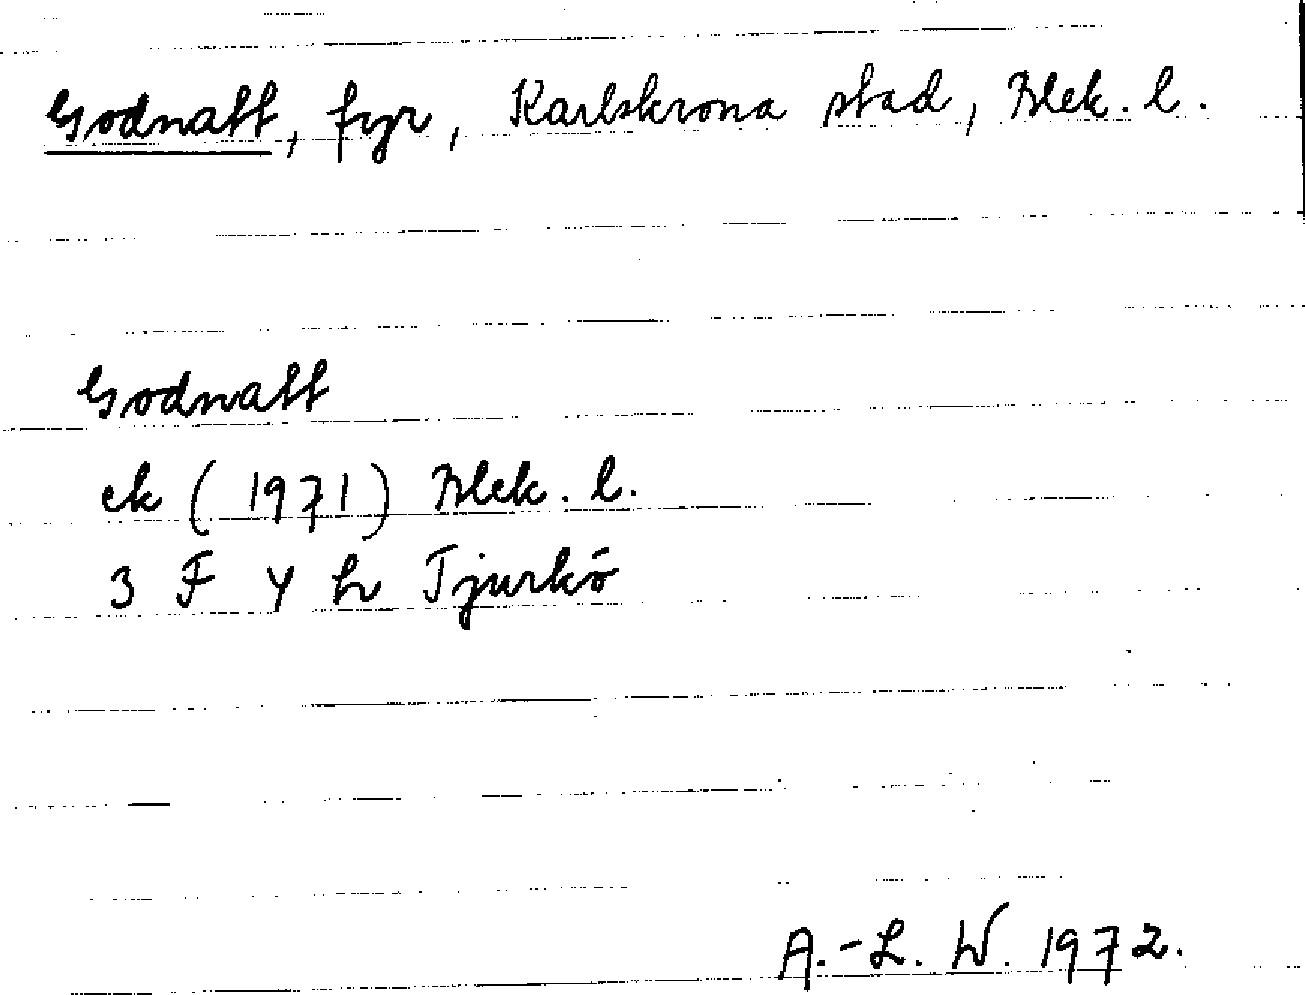 Godnatt, fyr, Karlskrona stad, Blek. l.
Godnatt
ek (1971) Blek. l.
3 F Y h Tjurkö
A.-L. W. 1972.